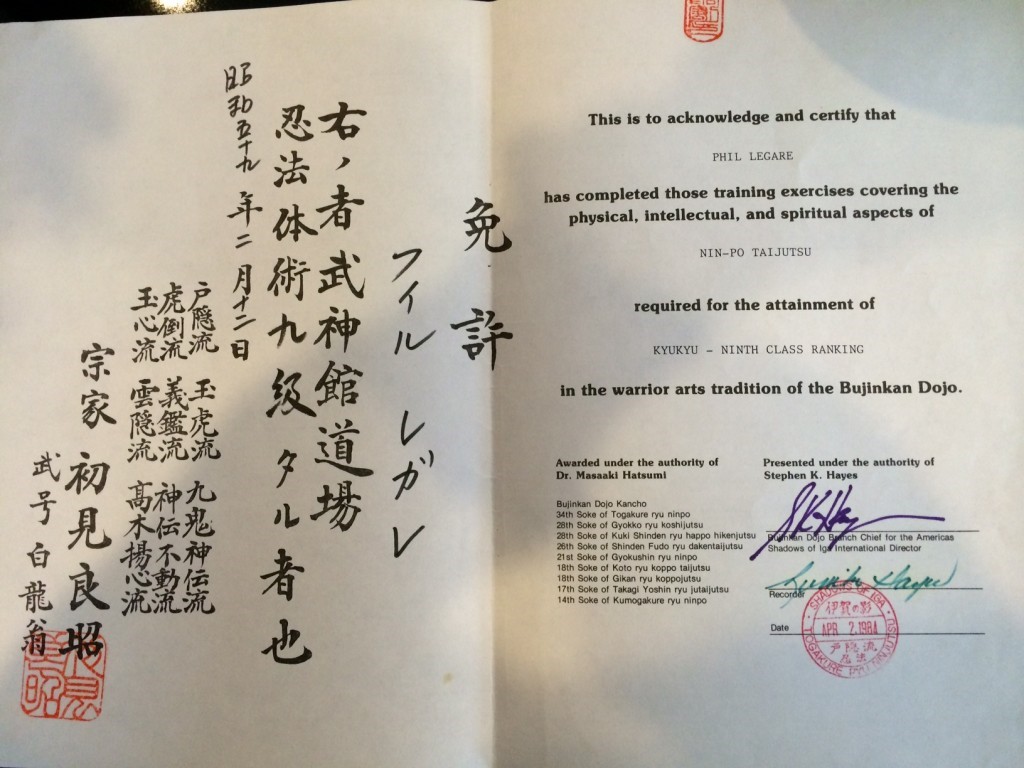 免許
フィル レガレ
右ノ者武神館道場
忍法体術九級タル者也
昭和五十九年二月十二日
戸隠流 玉虎流 九鬼神伝流
虎倒流 義鑑流 神伝不動流
玉心流 雲隠流 髙木揚心流
宗家 初見良昭
武号 白龍翁
This is to acknowledge and certify that
PHIL LEGARE
has completed those training exercises covering the
physical, intellectual, and spiritual aspects of
NIN-PO TAIJUTSU
required for the attainment of
KYUKYU - NINTH CLASS RANKING
in the warrior arts tradition of the Bujinkan Dojo.
Awarded under the authority of
Dr. Masaaki Hatsumi
Bujinkan Dojo Kancho
34th Soke of Togakure ryu ninpo
28th Soke of Gyokko ryu koshijutsu
28th Soke of Kuki Shinden ryu happo hikenjutsu
26th Soke of Shinden Fudo ryu dakentaijutsu
21st Soke of Gyokushin ryu ninpo
18th Soke of Koto ryu koppo taijutsu
18th Soke of Gikan ryu koppojutsu
17th Soke of Takagi Yoshin ryu jutaijutsu
14th Soke of Kumogakure ryu ninpo
Presented under the authority of
Stephen K. Hayes
Bujinkan Dojo Branch Chief for the Americas
Shadows of Iga International Director
Recorder
Date
SHADOWS OF IGA
伊賀の影
APR 2.1984
戸隠流
忍法
TOGAKURE RYU NINJUTSU